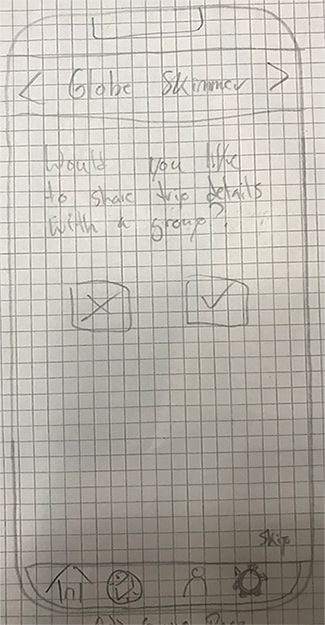 < Globe Skimmer >
Would you like
to share trip details
with a group?
Skip